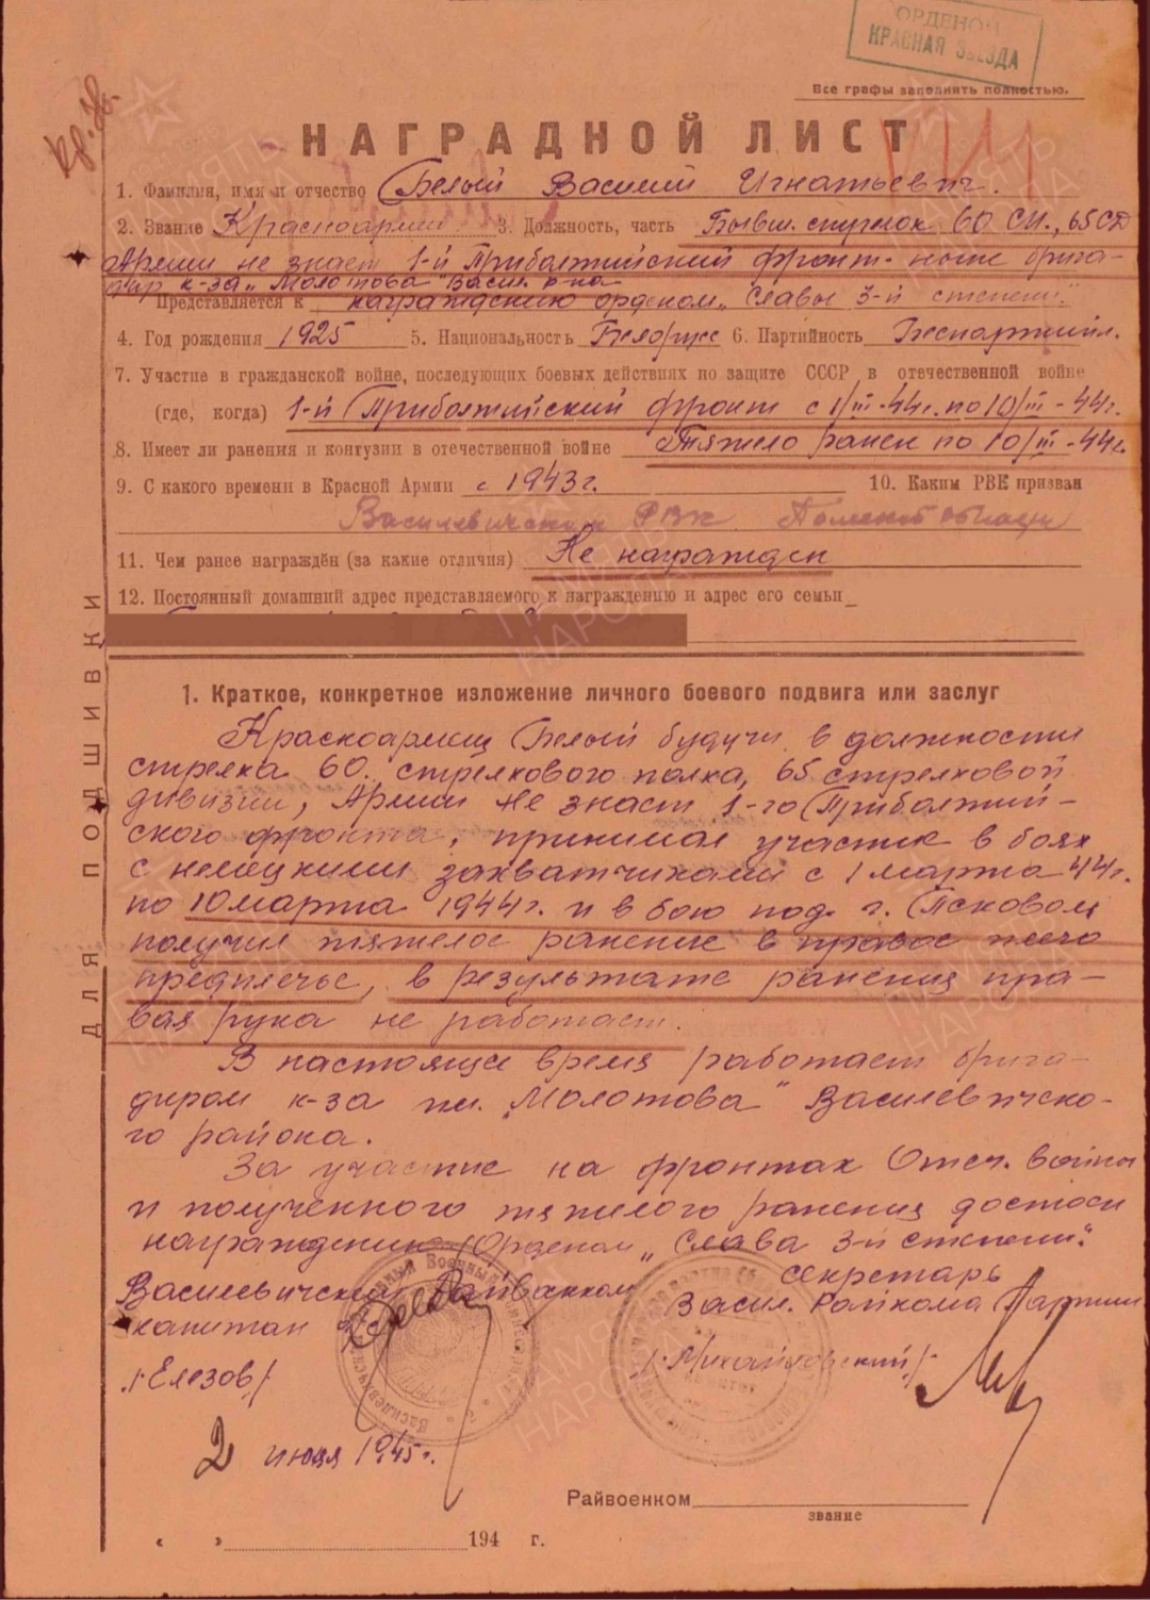 ОРДЕНОМ
КРАСНАЯ ЗВЕЗДА
Все графы заполнять полностью.
Кр. Зв.
НАГРАДНОЙ ЛИСТ
1. Фамилия, имя и отчество Белый Василий Игнатьевич.
2. Звание Красноармеец 3. Должность, часть Бывш. стрелок 60 СП., 65 СД
Армии не знает 1-й Прибалтийский фронт. ныне брига-
дир к-за „Молотова" Васил. р-на
Представляется к награждению орденом „Славы 3-й степени".
4. Год рождения 1925 5. Национальность Белорус 6. Партийность Беспартийн.
7. Участие в гражданской войне, последующих боевых действиях по защите СССР в отечественной войне
(где, когда) 1-й Прибалтийский фронт с 1/III-44г. по 10/III-44г.
8. Имеет ли ранения и контузии в отечественной войне Тяжело ранен 10/III-44г.
9. С какого времени в Красной Армии с 1943 г. 10. Каким РВК призван
Василевичским РВК Полесской области
11. Чем ранее награждён (за какие отличия) Не награжден
12. Постоянный домашний адрес представляемого к награждению и адрес его семьи
ДЛЯ ПОДШИВКИ
1. Краткое, конкретное изложение личного боевого подвига или заслуг
Красноармеец Белый будучи в должности
стрелка 60. стрелкового полка, 65 стрелковой
дивизии, Армии не знает 1-го Прибалтий-
ского фронта, принимал участие в боях
с немецкими захватчиками с 1 марта 44г.
по 10 марта 1944г. и в бою под г. Псковом
получил тяжелое ранение в правое плечо
предплечье, в результате ранения пра-
вая рука не работает.
В настоящее время работает брига-
диром к-за им. „Молотова" Василевичско-
го района.
За участие на фронтах Отеч. войны
и полученного тяжелого ранения достоен
награждению Орденом „Слава 3-й степени".
Василевичский Райвоенком
капитан
/Елезов/
секретарь
Васил. Райкома Партии
/Михайловский/
2 июля 1945г.
Райвоенком
звание
« » 194 г.